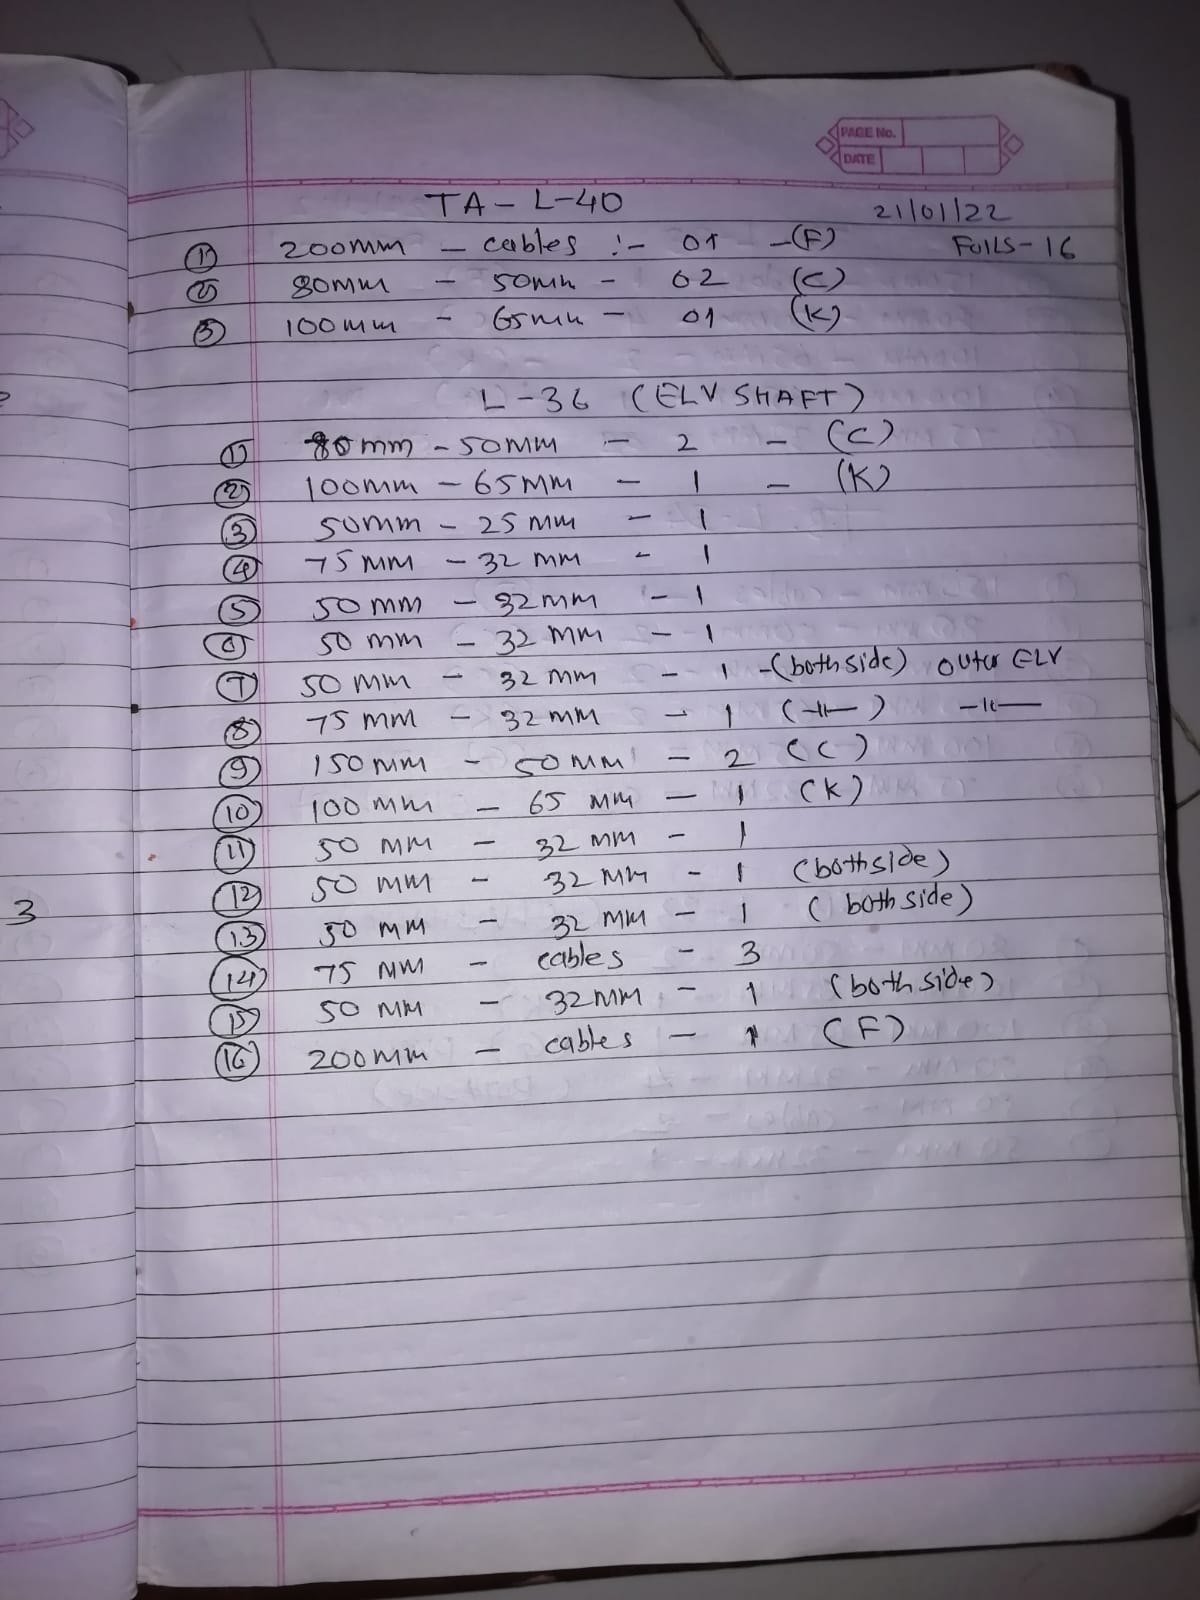 PAGE No.
DATE
TA - L-40 21/01/22
① 200mm - cables :- 01 - (F) FOILS - 16
② 80mm - 50mm - 02 (C)
③ 100mm - 65mm - 01 (K)
L-36 (ELV SHAFT)
① 80mm - 50mm - 2 - (C)
② 100mm - 65mm - 1 - (K)
③ 50mm - 25mm - 1
④ 75mm - 32mm - 1
⑤ 50mm - 32mm - 1
⑥ 50mm - 32mm - 1
⑦ 50mm - 32mm - 1 - (both side) outer ELV
⑧ 75mm - 32mm - 1 (-||-) -||-
⑨ 150mm - 50mm - 2 (C)
⑩ 100mm - 65mm - 1 (K)
⑪ 50mm - 32mm - 1
⑫ 50mm - 32mm - 1 (both side)
⑬ 50mm - 32mm - 1 (both side)
⑭ 75mm - cables - 3
⑮ 50mm - 32mm - 1 (both side)
⑯ 200mm - cables - 1 (F)
3